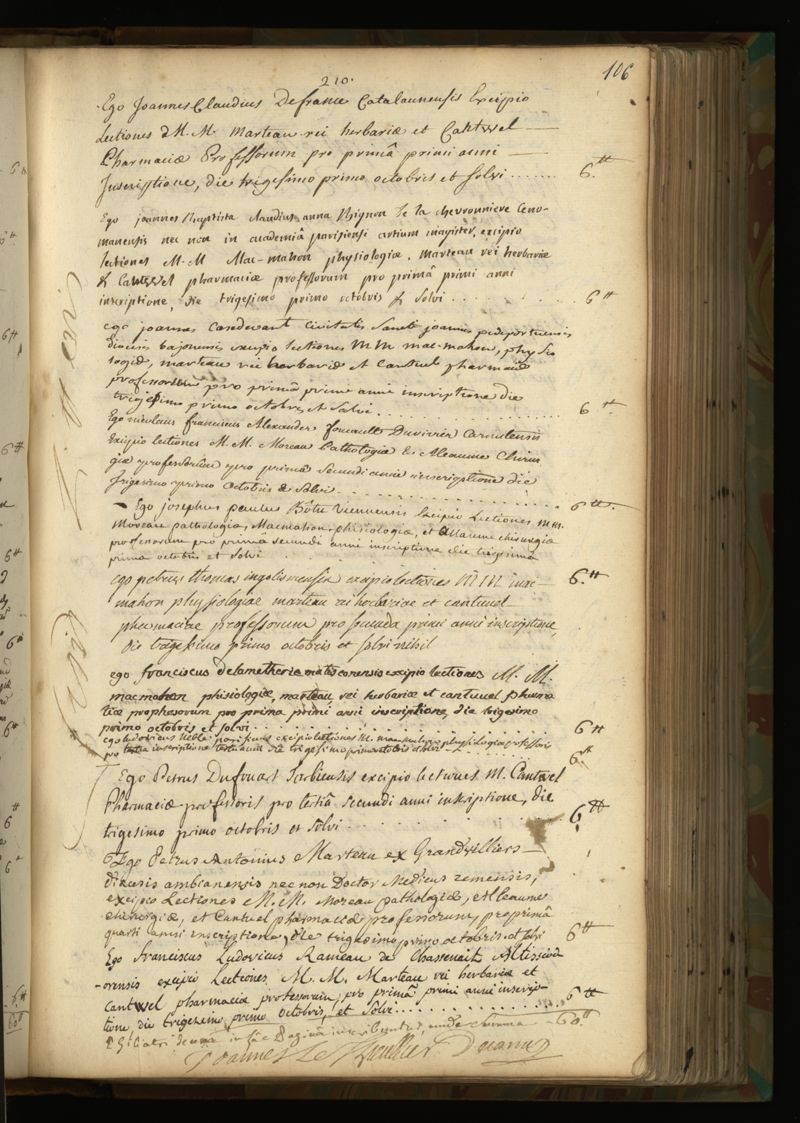 210.
106
Ego Joannes Claudius Defrance Catalaunensis Excipio
Lectiones d M. M. Marteau rei herbariæ et Cantwel
Pharmaciæ Professorum pro primâ primi anni
Inscriptione, die trigesimo primo octobris et solvi ....... 6.tt
Ego joannes Baptista claudius anna Mignon De la chevronniere Ceno-
manensis nec non in academiâ parisiensi artium magister, excipio
lectiones M. M Mac-mahon physiologiæ. marteau rei herbariæ
& Cantwel pharmaciæ professorum pro primâ primi anni
inscriptione, die trigesimo primo octobris & solvi . . . . . . . 6tt
ego joannes Casedevant Civitatis Sancti joannis pedeportuensis
diocesis bajonensis excipio lectiones M M mac-mahon, physio
logiæ, marteau rei herbariæ et Cantuel pharmaciæ
professorum pro primâ primi anni inscriptione die
trigesimo primo octobris et solvi . . . . . . . . . . . 6tt
Ego nicolaus franciscus Alexander foucault Duvivier Carnutensis
Excipio lectiones M. M. Moreau Pathologiæ & Aleaume Chirur
giæ professorum pro primâ secundi anni inscriptione die
trigesimo primo Octobris & solvi . . . . . . . . . . . . 6tt.
Ego josephus paulus Viennensis Excipio Lectiones m m.
Moreau pathologiæ, Macmahon phisiologiæ, et alleaume chirurgiæ
professorum pro primâ secundi anni inscriptione die trigesimâ
prima octobris et solvi . . . . . . . . . . 6.tt
ego petrus thomas ingolismensis excipio lectiones M M mac
mahon physiologiæ marteau rei herbariæ et cantuuel
pharmaciæ professorum pro secunda primi anni inscriptione,
die trigesimo primo octobris et solvi nihil
ego franciscus delametherie matisconensis excipio lectiones M. M.
macmahon phisiologiæ, marteau rei herbariæ et cantuuel pharma
ciæ prophesorum pro prima primi anni inscriptione die trigesimo
primo octobris et solvi . . . . . . . . . . . . 6tt
ego ludovicus parisinus excipio lectiones M. macmahon physiologiæ professoris
pro tertia inscriptione tertii anni die trigesimo primo octobris et solvi . . . . 6tt
Ego Petrus Dufouart Tarbiensis excipio lectiones M. Cantwel
Pharmaciæ professoris pro tertiâ secundi anni inscriptione, die
trigesimo primo octobris et solvi . . . . . . . . . 6tt
Ego Petrus Antonius Marteau ex Grandvilliers
diœcesis ambianensis nec non Doctor Medicus remensis,
excipio Lectiones M. M. Moreau pathologiæ, Alleaume
chirurgiæ, et Cantuel pharmaciæ professorum, pro primâ
quarti anni inscriptione, die trigesimo primo octobris et solvi 6tt
Ego franciscus Ludovicus Rameau de Chassenait Altissiod
-orensis excipio Lectiones M. M. Marteau rei herbariæ et
Cantwel pharmaciæ professorum, pro primâ primi anni inscrip-
tione die trigesimo primo octobris, et solvi . . . . . . . . 6tt
in hâc Paginâ inscribuntur, unde summa - 60tt
Joannes Le Thieullier Decanus